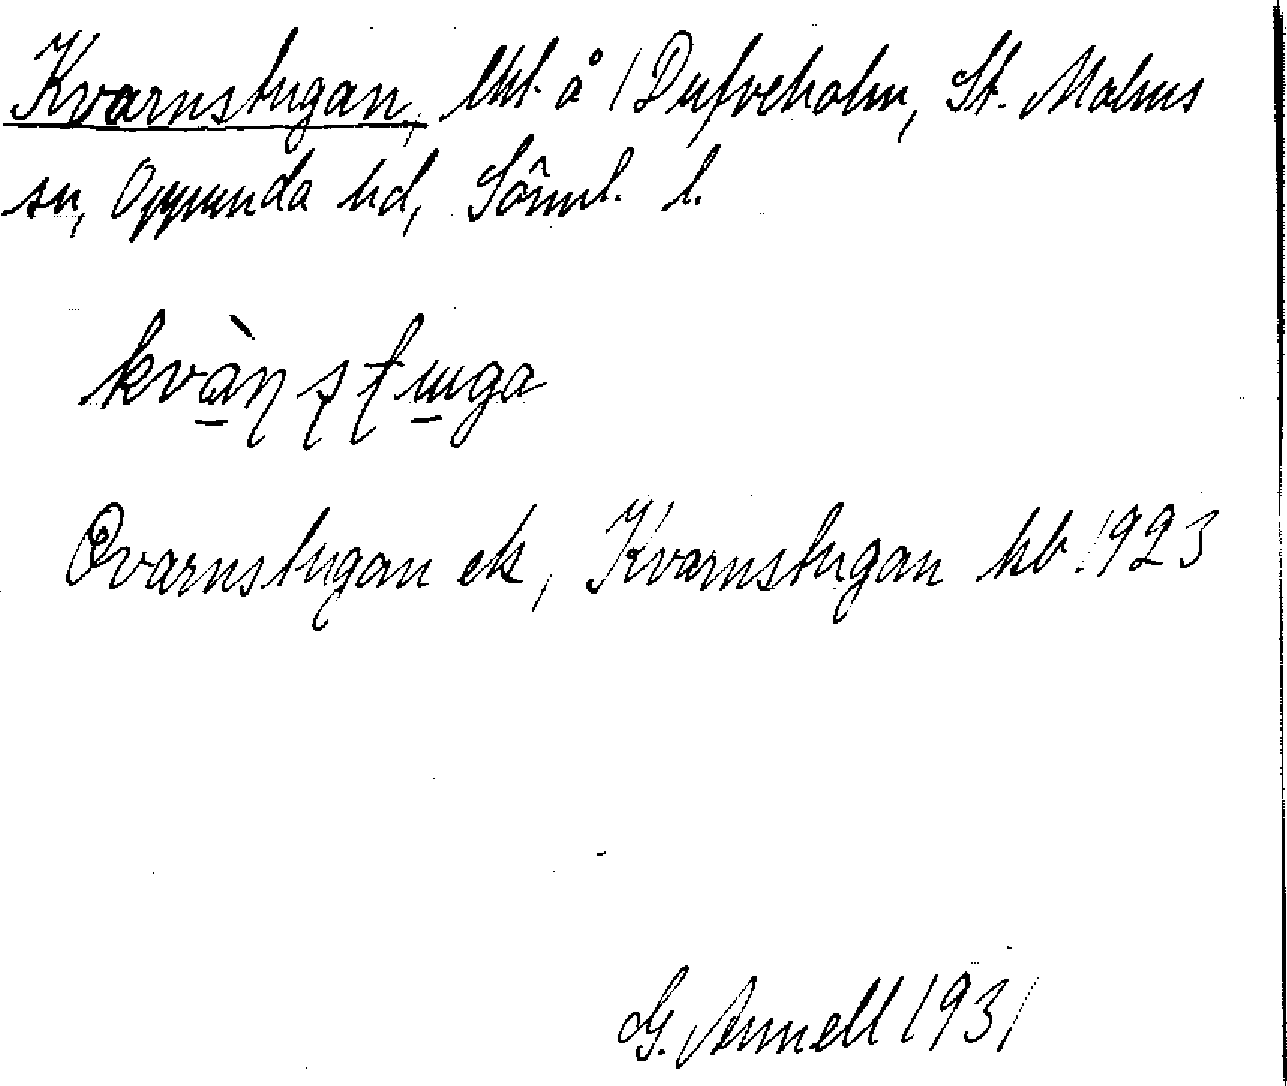 Kvarnstugan, lht. å 1 Dufveholm, St. Malms
sn, Oppunda hd, Sörml. l.
kvà̱ɳʂʈɯ̱ga
Qvarnstugan ek, Kvarnstugan kb. 1923
G. Annell 1931